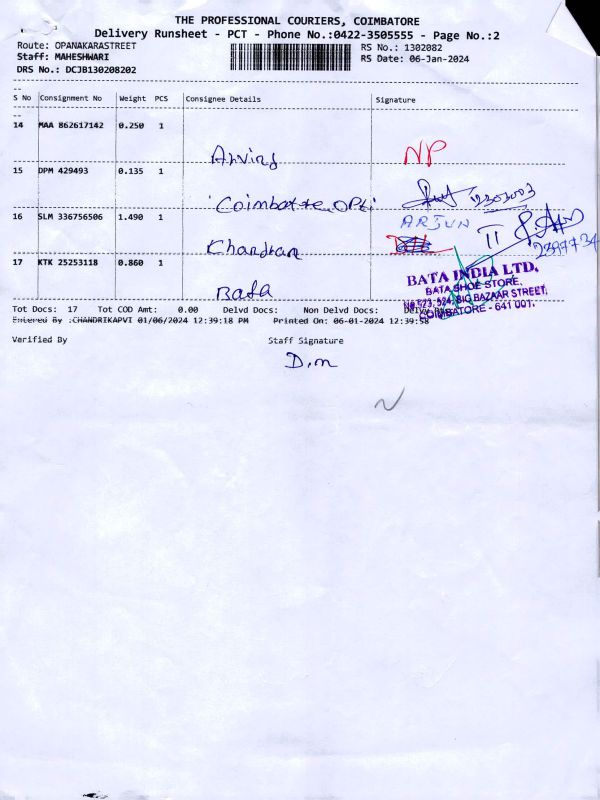 THE PROFESSIONAL COURIERS, COIMBATORE
Delivery Runsheet - PCT - Phone No.:0422-3505555 - Page No.:2
Route: OPANAKARASTREET
RS No.: 1302082
Staff: MAHESHWARI
RS Date: 06-Jan-2024
DRS No.: DCJB130208202
S No Consignment No Weight PCS Consignee Details Signature
14 MAA 862617142 0.250 1
Arving NP
15 DPM 429493 0.135 1
Coimbatore Opti
16 SLM 336756506 1.490 1 ARJUN
Chandran
17 KTK 25253118 0.860 1
Bata
BATA INDIA LTD.
BATA SHOE STORE,
No.523, 524, BIG BAZAAR STREET,
COIMBATORE - 641 001.
Tot Docs: 17 Tot COD Amt: 0.00 Delvd Docs: Non Delvd Docs:
Entered By :CHANDRIKAPVI 01/06/2024 12:39:18 PM Printed On: 06-01-2024 12:39:58
Verified By Staff Signature
D.m